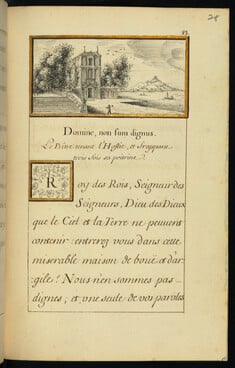 83
28
Domine, non sum dignus.
Le Prêtre tenant l'Hostie, et frappant
trois fois sa poitrine.
Roy des Rois, Seigneur des
Seigneurs, Dieu des Dieux
que le Ciel et la Terre ne peuvent
contenir: entrerez vous dans cette
miserable maison de bouë et d'ar-
gile! Nous n'en sommes pas
dignes, et une seule de vos paroles